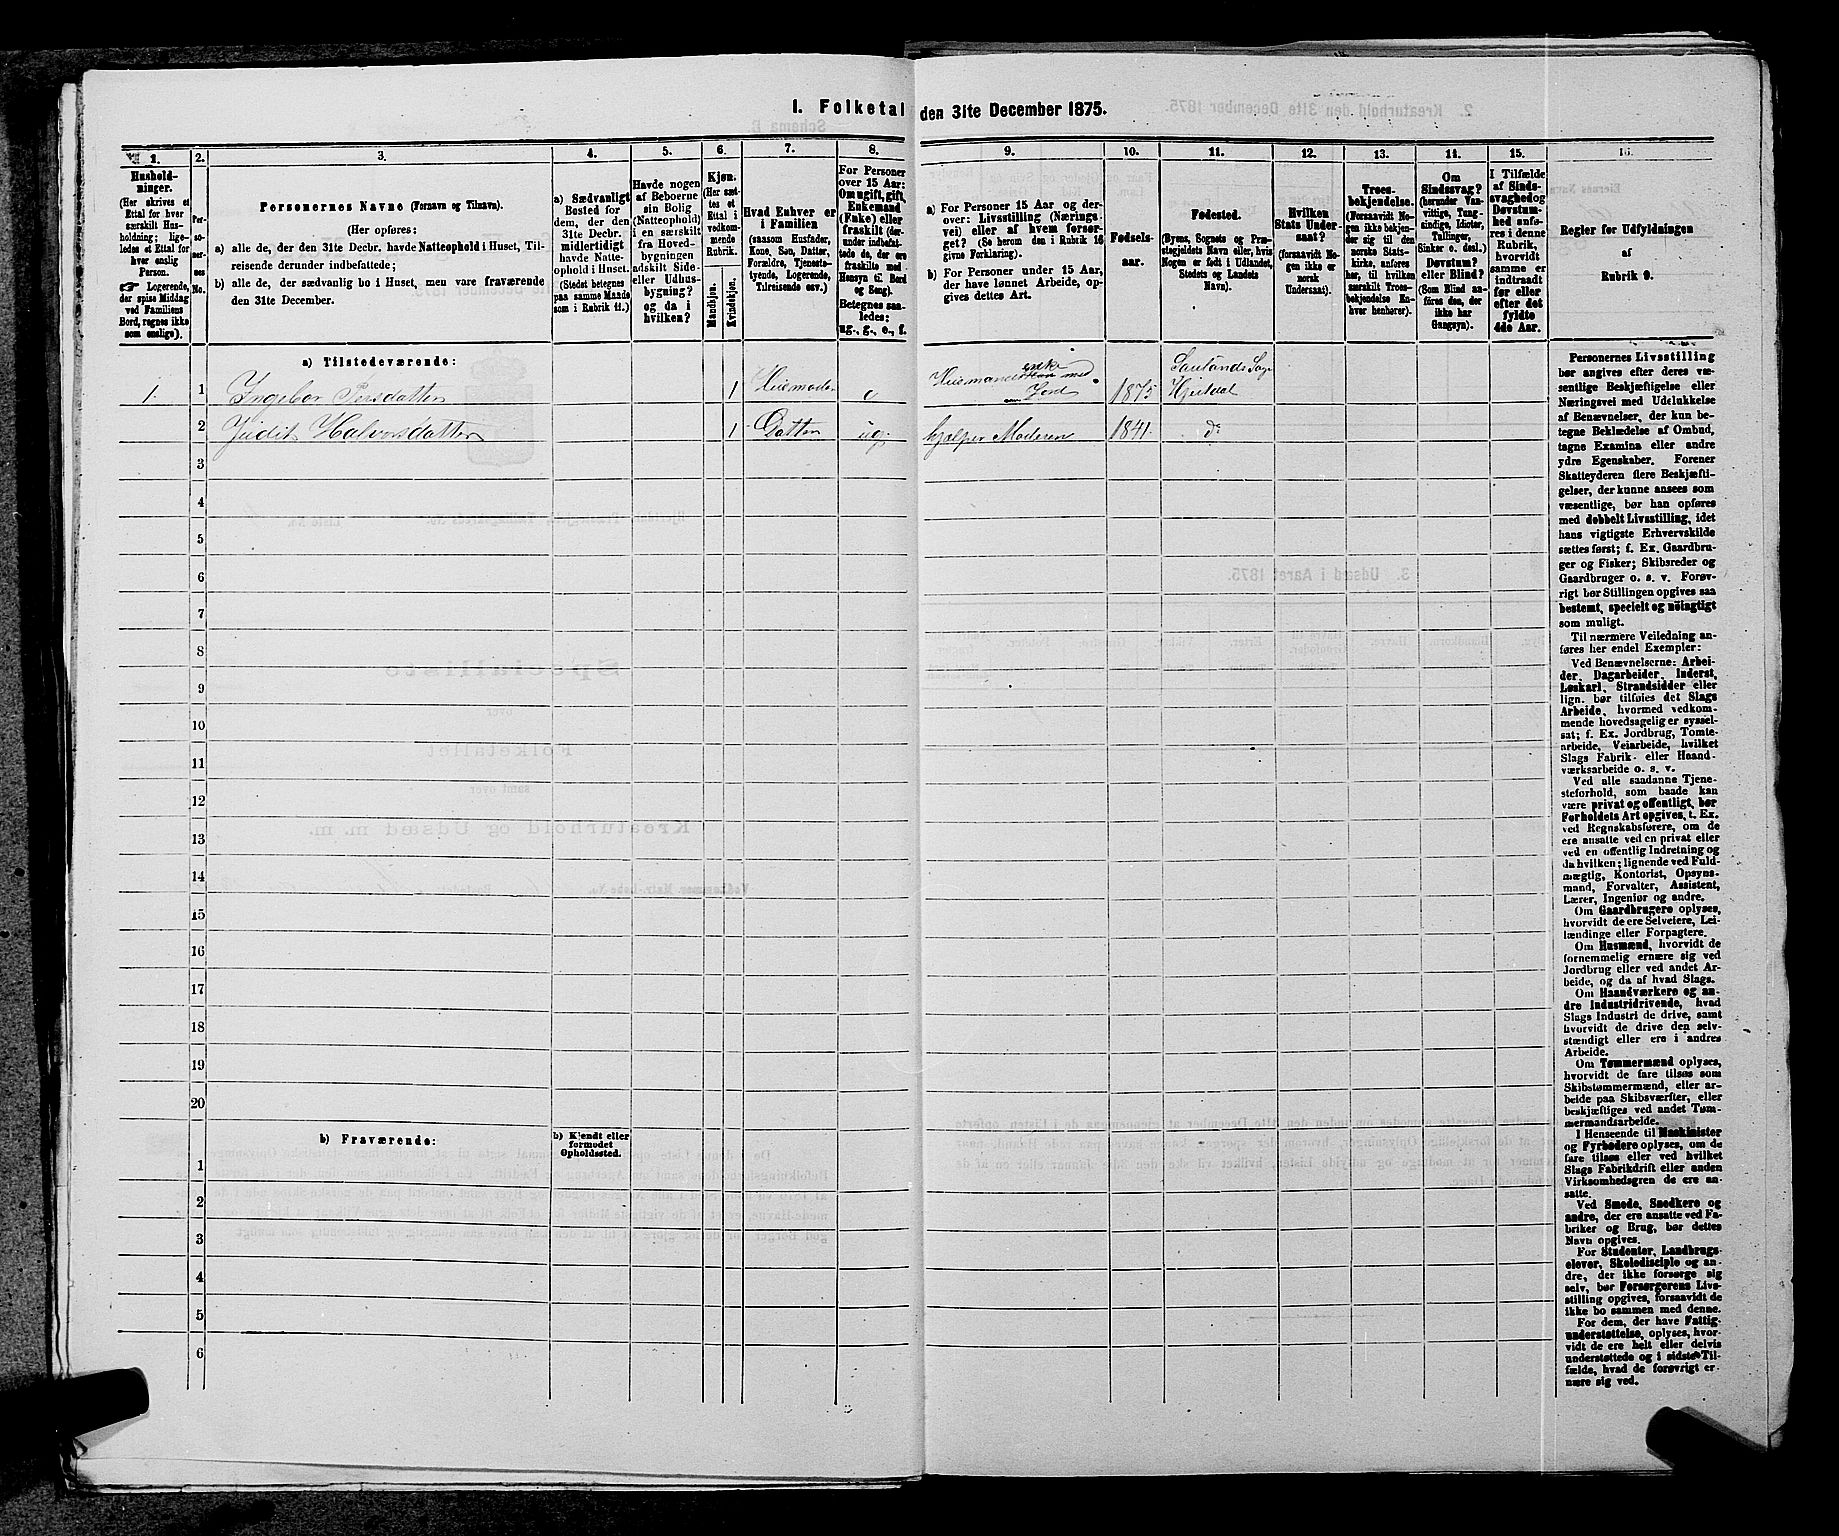 I. Folketal den 31te December 1875.
1.
Hushold-
ninger.
(Her skrives et
Ettal for hver
særskilt Hus-
holdning; lige-
ledes et Ettal for
hver enslig
Person.
☞ Logerende,
der spise Middag
ved Familiens
Bord, regnes ikke
som enslige).
2.
Per-
so-
ner-
nes
No.
3.
Personernes Navne (Fornavn og Tilnavn).
(Her opføres:
a) alle de, der den 31te Decbr. havde Natteophold i Huset, Til-
reisende derunder indbefattede;
b) alle de, der sædvanlig bo i Huset, men vare fraværende
den 31te December.
4.
a) Sædvanligt
Bosted for
dem, der den
31te Decbr.
midlertidigt
havde Natte-
ophold i Huset.
(Stedet betegnes
paa samme Maade
som i Rubrik 11.)
5.
Havde nogen
af Beboerne
sin Bolig
(Natteophold)
i en særskilt
fra Hoved-
bygningen
adskilt Side-
eller Udhus-
bygning?
og da i
hvilken?
6.
Kjøn.
(Her sæt-
tes et
Ettal i
vedkom-
mende
Rubrik.
Mandkjøn.
Kvindekjøn.
7.
Hvad Enhver er
i Familien
(saasom Husfader,
Kone, Søn, Datter,
Forældre, Tjeneste-
tyende, Logerende,
Tilreisende osv.)
8.
For Personer
over 15 Aar:
Om ugift, gift,
Enkemand
(Enke) eller
fraskilt (der-
under indbefat-
tede de, der ere
fraskilte med
Hensyn til Bord
og Seng).
Betegnes saa-
ledes:
ug., g., e., f.
9.
a) For Personer 15 Aar og der-
over: Livsstilling (Nærings-
vei) eller af hvem forsør-
get? (Se herom den i Rubrik 16
givne Forklaring).
b) For Personer under 15 Aar,
der have lønnet Arbeide, op-
gives dettes Art.
10.
Fødsels-
aar.
11.
Fødested.
(Byens, Sognets og Præ-
stegjeldets Navn eller, hvis
Nogen er født i Udlandet,
Stedets og Landets
Navn).
12.
Hvilken
Stats Under-
saat?
(forsaavidt No-
gen ikke er
norsk
Undersaat).
13.
Troes-
bekjendelse.
(Forsaavidt No-
gen ikke bekjen-
der sig til den
norske Stats-
kirke, anføres
her, til hvilken
særskilt Troes-
bekjendelse En-
hver henhører).
14.
Om
Sindssvag?
(herunder Van-
vittige, Tung-
sindige, Idioter,
Tullinger,
Sinker o. desl.)
Døvstum?
eller Blind?
(Som Blind an-
føres den, der
ikke har
Gangsyn).
15.
I Tilfælde
af Sinds-
svaghed og
Døvstum-
hed anfø-
res i denne
Rubrik,
hvorvidt
samme er
indtraadt
før eller
efter det
fyldte
4de Aar.
16.
Regler for Udfyldningen
af
Rubrik 9.
a) Tilstedeværende:
1. 1 Ingebor Persdatter 1 Huusmoder e Huusmands enke med Jord 1875 Saulands Sogn Hjerdal
2 Judit Halvorsdatter 1 Datter ug. hjælper Moderen 1841. do
3
4
5
6
7
8
9
10
11
12
13
14
15
16
17
18
19
20
b) Fraværende:
b) Kjendt eller
formodet
Opholdssted.
1
2
3
4
5
6
Personernes Livsstilling
bør angives efter deres væ-
sentlige Beskjæftigelse eller
Næringsvei med Udelukkelse
af Benævnelser, der kun be-
tegne Beklædelse af Ombud,
tagne Examina eller andre
ydre Egenskaber. Forener
Skatteyderen flere Beskjæfti-
gelser, der kunne ansees som
væsentlige, bør han opføres
med dobbelt Livsstilling, idet
hans vigtigste Erhvervskilde
sættes først; f. Ex. Gaardbru-
ger og Fisker; Skibsreder og
Gaardbruger o. s. v. Forøv-
rigt bør Stillingen opgives saa
bestemt, specielt og nöiagtigt
som muligt.
Til nærmere Veiledning an-
føres her endel Exempler:
Ved Benævnelserne: Arbei-
der, Dagarbeider, Inderst,
Løskarl, Strandsidder eller
lign. bør tilføies det Slags
Arbeide, hvormed vedkom-
mende hovedsagelig er syssel-
sat; f. Ex. Jordbrug, Tomte-
arbeide, Veiarbeide, hvilket
Slags Fabrik- eller Haand-
værksarbeide o. s. v.
Ved alle saadanne Tjene-
steforhold, som baade kan
være privat og offentligt, bør
Forholdets Art opgives, t. Ex.
ved Regnskabsførere, om de
ere ansatte ved en privat eller
ved en offentlig Indretning og
da hvilken; lignende ved Fuld-
mægtig, Kontorist, Opsyns-
mand, Forvalter, Assistent,
Lærer, Ingeniør og andre.
Om Gaardbrugere oplyses,
hvorvidt de ere Selveiere, Lei-
lændinge eller Forpagtere.
Om Husmænd, hvorvidt de
fornemmelig ernære sig ved
Jordbrug eller ved andet Ar-
beide, og da af hvad Slags.
Om Haandværkere og an-
dre Industridrivende, hvad
Slags Industri de drive, samt
hvorvidt de drive den selv-
stændigt eller ere i andres
Arbeide.
Om Tømmermænd oplyses,
hvorvidt de fare tilsøs som
Skibstømmermænd, eller ar-
beide paa Skibsværfter, eller
beskjæftiges ved andet Tøm-
mermandsarbeide.
I Henseende til Maskinister
og Fyrbødere oplyses, om de
fare tilsøs eller ved hvilket
Slags Fabrikdrift eller anden
Virksomhedsgren de ere an-
satte.
Ved Smede, Snedkere og
andre, der ere ansatte ved Fa-
briker og Brug, bør dettes
Navn opgives.
For Studenter, Landbrugs-
elever, Skoledisciple og an-
dre, der ikke forsørge sig
selv, bør Forsørgerens Livs-
stilling opgives, forsaavidt de
ikke bo sammen med denne.
For dem, der have Fattig-
understøttelse, oplyses, hvor-
vidt de ere helt eller delvis
understøttede og i sidste Til-
fælde, hvad de forøvrigt er-
nære sig ved.